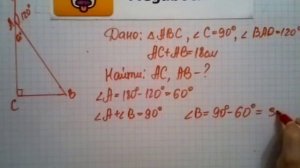 A
120°
60°
C
B
Дано: △ABC, ∠C=90°, ∠BAD=120°
AC+AB=18см
Найти: AC, AB-?
∠A=180°-120°=60°
∠A+∠B=90° ∠B=90°-60°=3